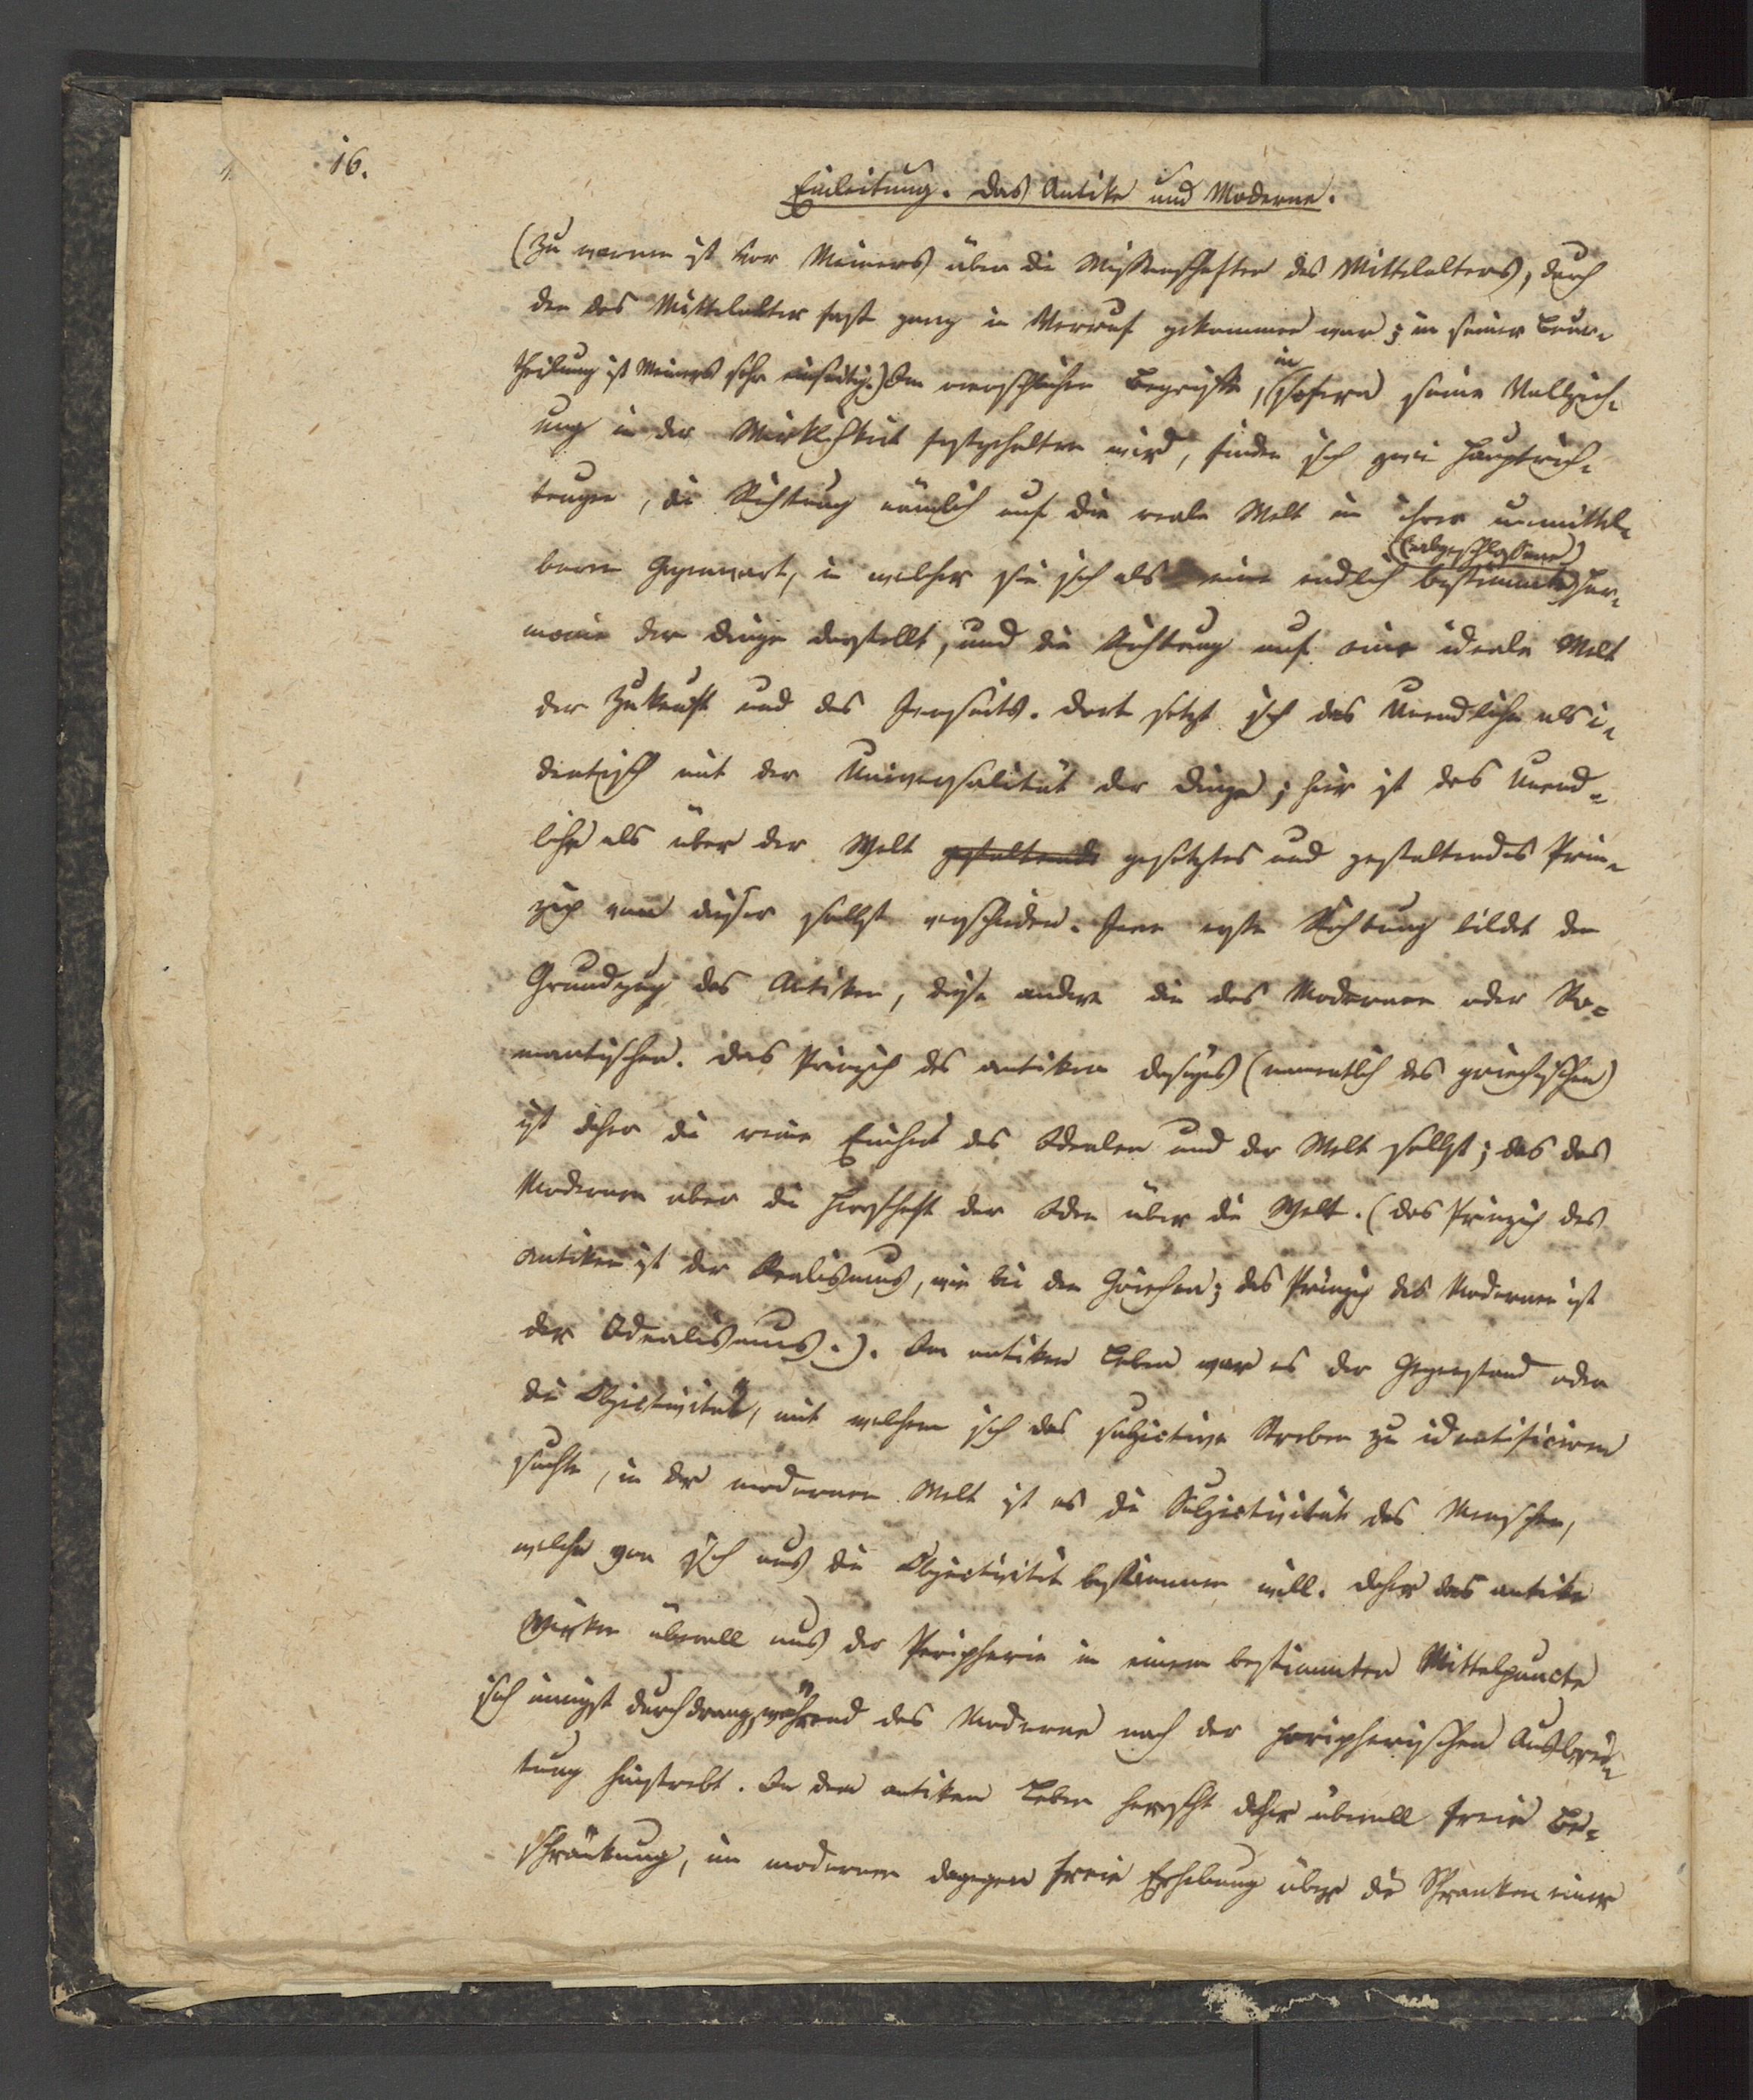 16.
Einleitung. Das Antike und Moderne.
(Zu warnen ist vor Meiners über die Wissenschaften des Mittelalters, durch
den das Mittelalter fast ganz in Verruf gekommen war; in seiner Beur-
theilung ist Meiners sehr einseitig.) Im menschlichen Begriffe, in sofern seine Vollzieh-
ung in der Wirklichkeit festgehalten wird, finden sich zwei Hauptrich-
tungen, die Richtung nämlich auf die reale Welt in ihrer unmittel-
(abgeschlossene)
baren Gegenwart, in welcher sie sich als eine endlich bestimmte Har-
monie der Dinge darstellt, und die Richtung auf eine ideale Welt
der Zukunft und des Jenseits. Dort setzt sich das Unendliche als i-
dentisch mit der Universalität der Dinge; hier ist das Unend-
liche als über der Welt gestaltende gesetztes und gestaltendes Prin-
zip von dieser selbst verschieden. Jene erste Richtung bildet den
Grundzug des Antiken, diese andere die des Modernen oder Ro-
mantischen. Das Prinzip des antiken (namentlich des griechischen)
ist daher die reine Einheit des Idealen und der Welt selbst; das des
Modernen aber die Herrschaft der Idee über die Welt. (Das Prinzip des
Antiken ist der Realismus, wie bei den Griechen; das Prinzip des Modernen ist
der Idealismus.). Im antiken Leben war es der Gegenstand oder
die Objectivität, mit welchem sich das subjective Streben zu identificiren
suchte, in der modernen Welt ist es die Subjectivität des Menschen,
welche von sich aus die Objectivität bestimmen will. Daher das antike
Wirken überall aus der Peripherie in einem bestimmten Mittelpuncte
sich innigst durchdrang, während das Moderne nach der peripherischen Ausbrei-
tung hinstrebt. In dem antiken Leben herrscht daher überall freie Be-
schränkung, im modernen dagegen freie Erhebung über die Schranken einer